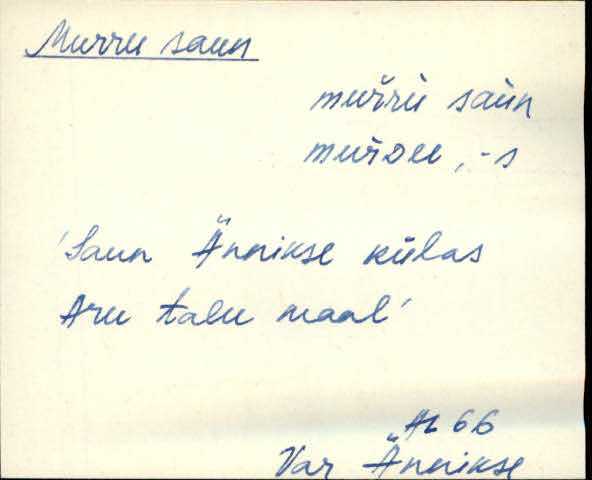 Murru saun
mur̆rù saùn
mur̆Du, -s
'Saun Ännikse külas
Aru talu maal'
AL 66
Var Ännikse